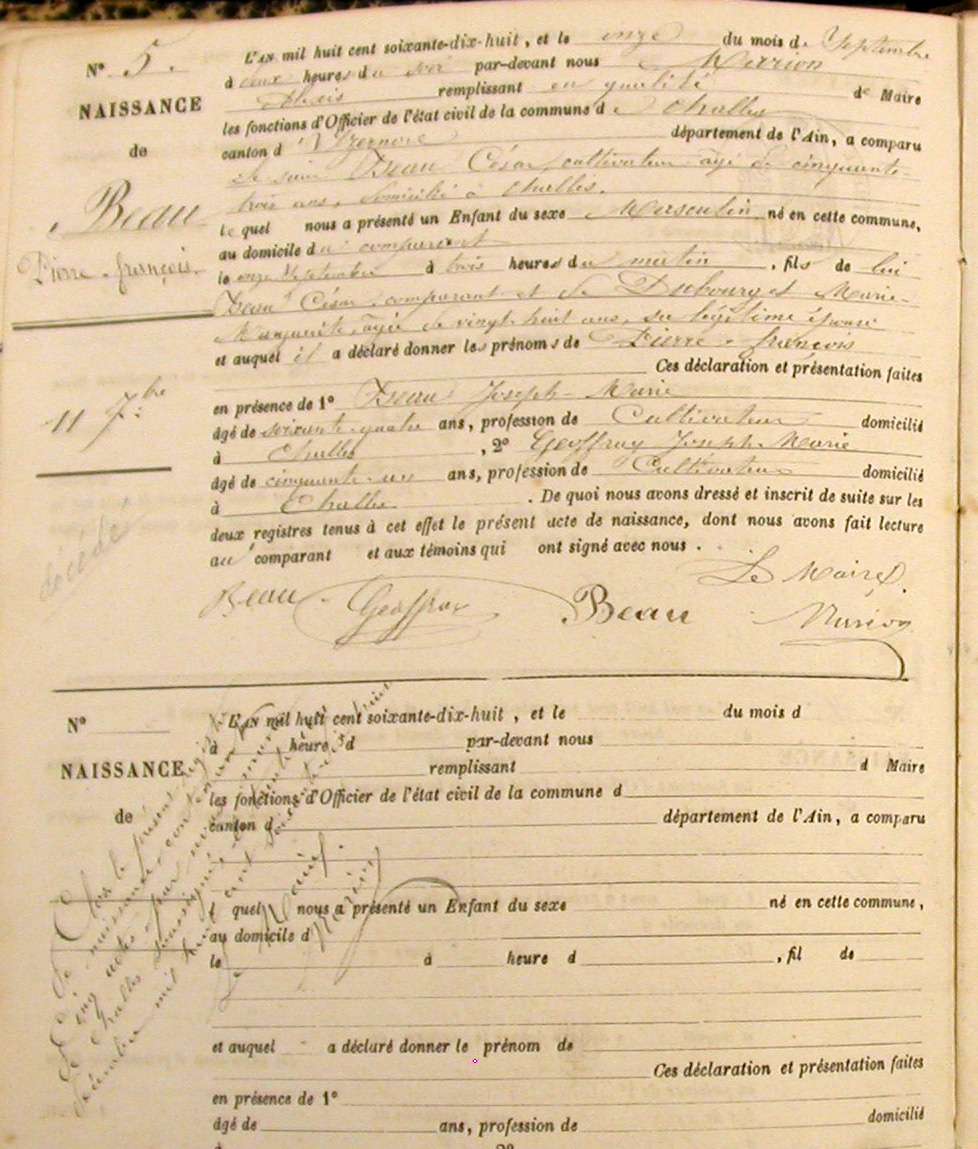 N° 5.
NAISSANCE
de
Beau
Pierre-françois.
11 7bre
décédé
L'AN mil huit cent soixante-dix-huit, et le onze du mois de Septembre
à deux heures du soir par-devant nous Murion
Alexis remplissant en qualité de Maire
les fonctions d'Officier de l'état civil de la commune de Challes
canton d'Izernore département de l'Ain, a comparu
le sieur Beau César, cultivateur âgé de cinquante-
trois ans, domicilié à Challes.
lequel nous a présenté un Enfant du sexe Masculin né en cette commune,
au domicile du comparant
le onze Septembre à trois heures du matin, fils de lui
Beau César, comparant et de Dubourget Marie-
Marguerite, âgée de vingt-huit ans, sa légitime épouse
et auquel il a déclaré donner les prénoms de Pierre-françois
Ces déclaration et présentation faites
en présence de 1° Beau Joseph-Marie
âgé de soixante-quatre ans, profession de Cultivateur domicilié
à Challes, 2° Geoffray Joseph-Marie
âgé de cinquante-un ans, profession de Cultivateur domicilié
à Challes. De quoi nous avons dressé et inscrit de suite sur les
deux registres tenus à cet effet le présent acte de naissance, dont nous avons fait lecture
au comparant et aux témoins qui ont signé avec nous.
Le Maire
Beau Geoffray Beau Murion
N°
NAISSANCE
de
L'AN mil huit cent soixante-dix-huit, et le du mois d
à heure d par-devant nous
remplissant d Maire
les fonctions d'Officier de l'état civil de la commune d
canton d département de l'Ain, a comparu
l quel nous a présenté un Enfant du sexe né en cette commune,
au domicile d
le à heure d, fil de
et auquel a déclaré donner le prénom de
Ces déclaration et présentation faites
en présence de 1°
âgé de ans, profession de domicilié
à 2°
Clos le présent registre
de naissance contenant
cinq actes par nous maire
de Challes soussigné le
décembre mil huit cent soixante
Le Maire.
Murion